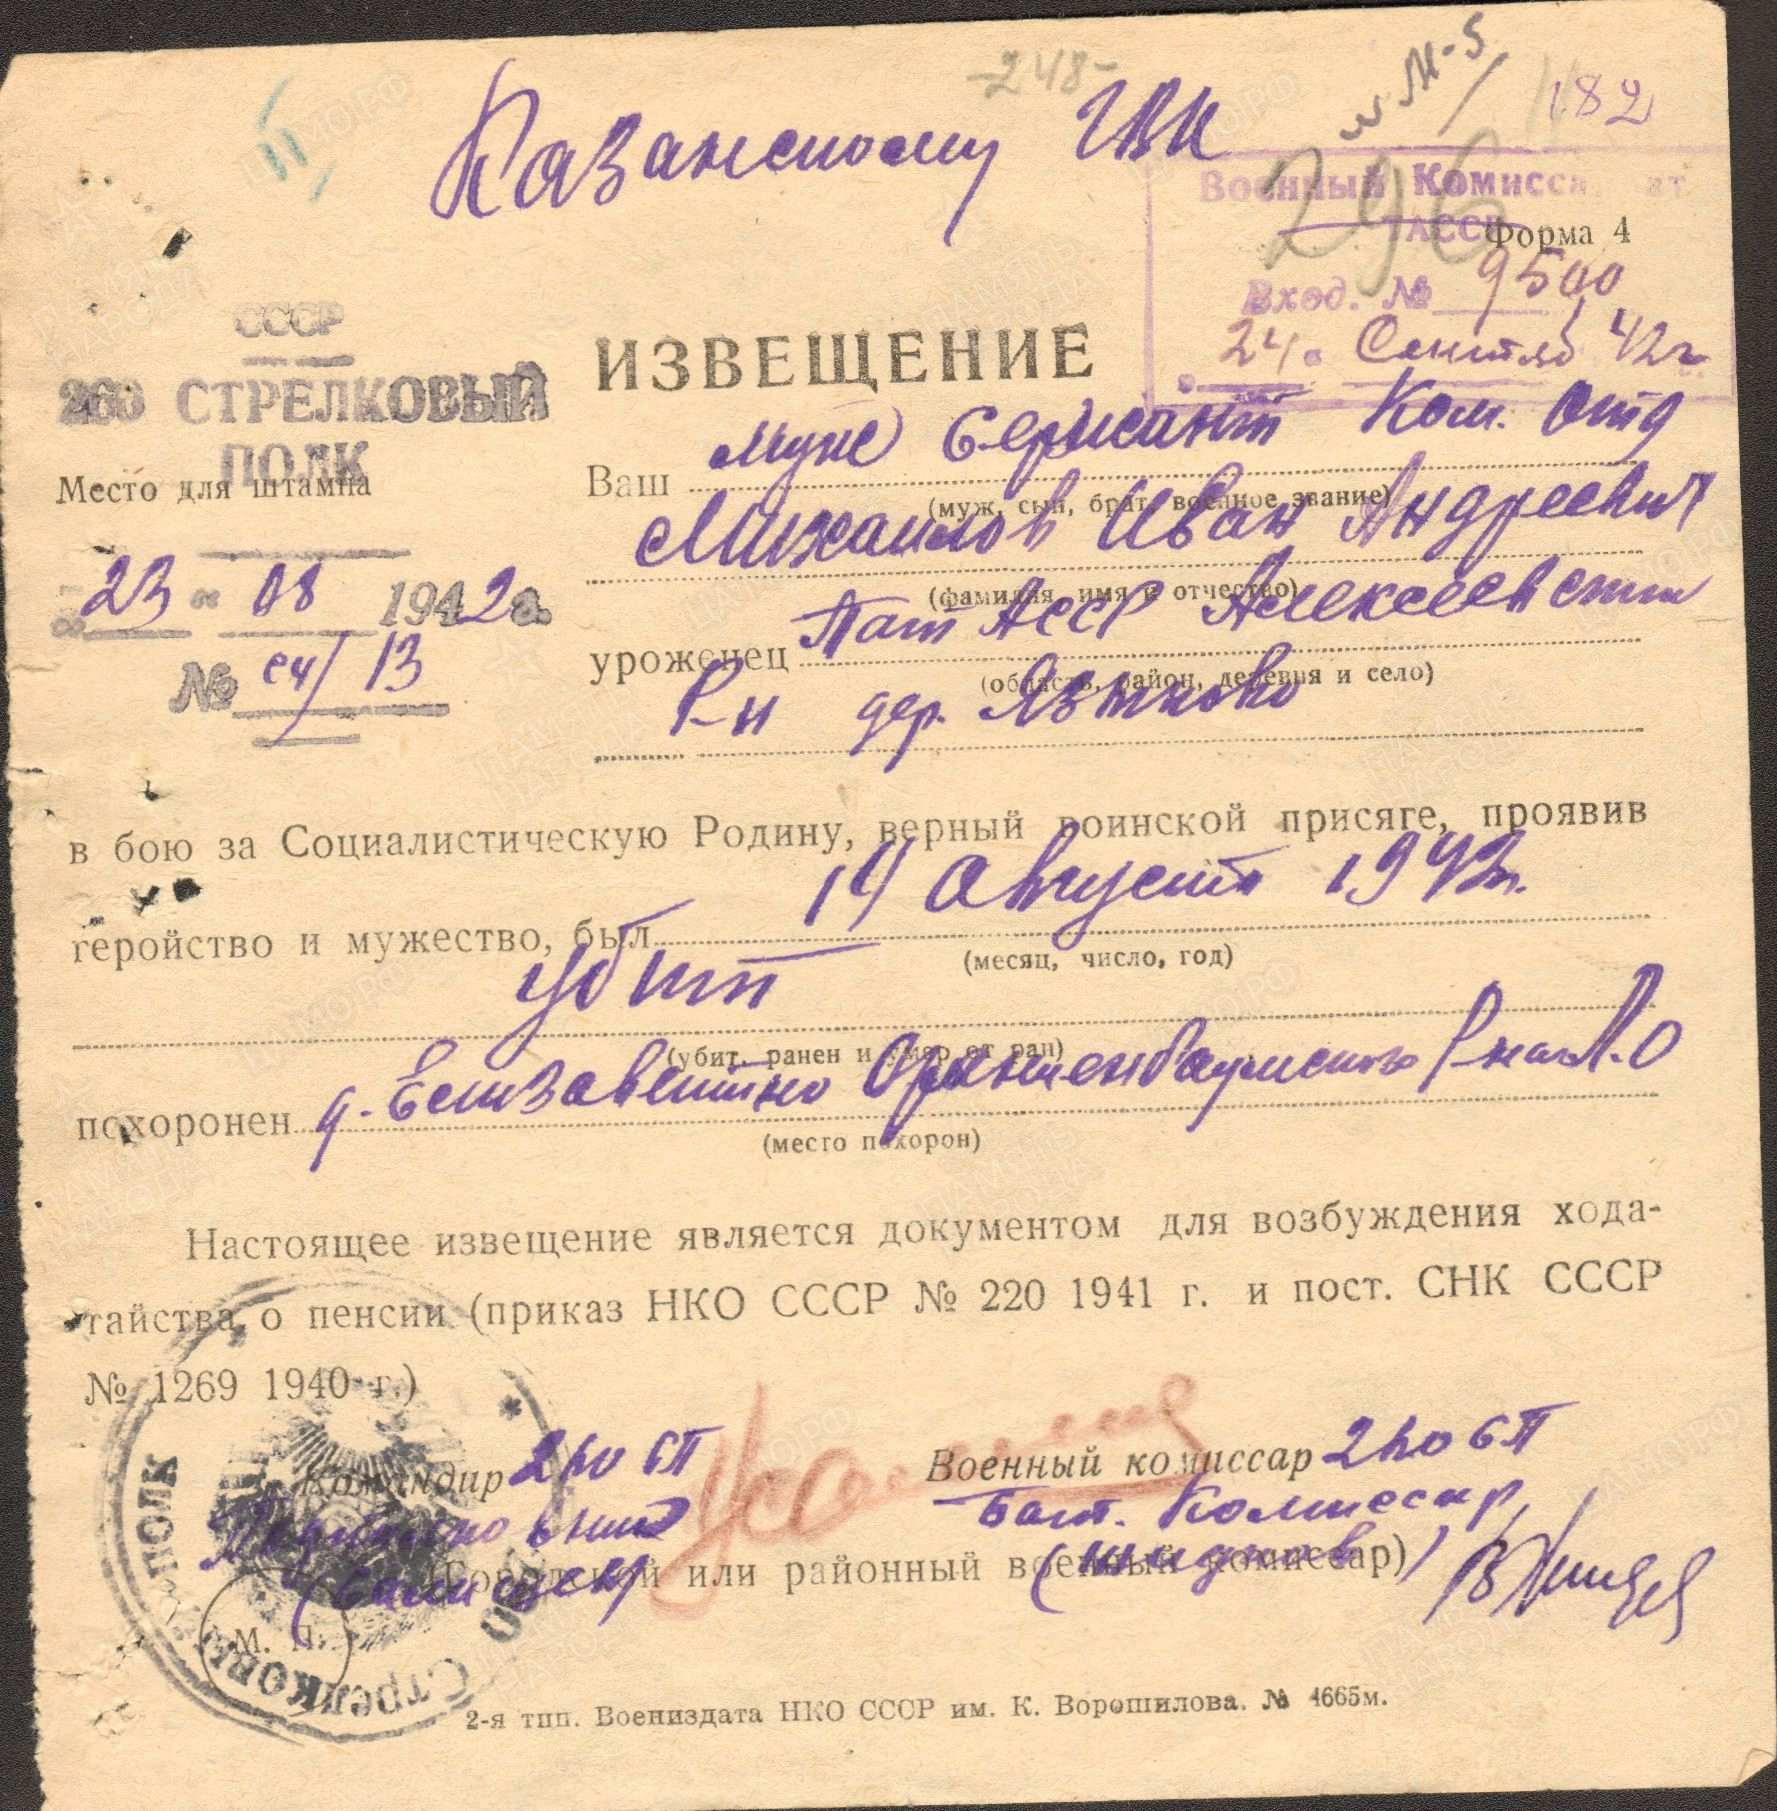 -248-
М-5
182
Казанскому ГВК
296
Военный Комисса ат
ТАССР
Форма 4
Вход. № 9500
24. Сентяб 42г.
СССР
260 СТРЕЛКОВЫЙ
ПОЛК
Место для штампа
23 - 08 1942 г.
№ сч/13
ИЗВЕЩЕНИЕ
Ваш муж Сержант Ком. Отд
(муж, сын, брат, военное звание)
Михаилов Иван Андреевич
(фамилия, имя и отчество)
уроженец Тат АССР Алексеевский
(область, район, деревня и село)
Р-н дер. Язиково
в бою за Социалистическую Родину, верный воинской присяге, проявив
геройство и мужество, был 14 Августа 1942г.
(месяц, число, год)
убит
(убит, ранен и умер от ран)
похоронен д. Елизаветино Ораниенбаумского Р-на Л.О
(место похорон)
Настоящее извещение является документом для возбуждения хода-
тайства о пенсии (приказ НКО СССР № 220 1941 г. и пост. СНК СССР
№ 1269 1940 г.)
Командир 260 СП
Военный комиссар 260 СП
Подполковник
Бат. Комиссар
(Городской или районный военный комиссар)
М. П.
Стрелковый полк
2-я тип. Воениздата НКО СССР им. К. Ворошилова. № 4665м.